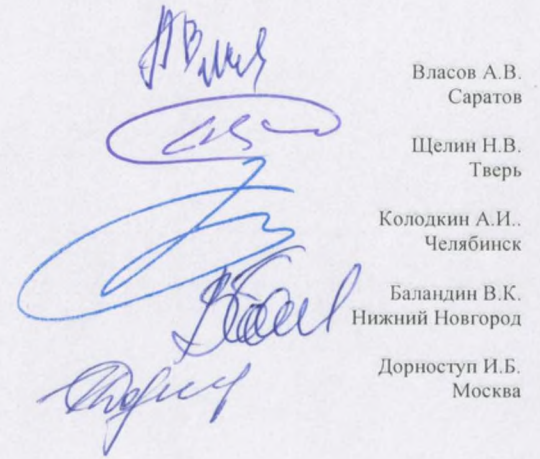 Власов А.В.
Саратов
Щелин Н.В.
Тверь
Колодкин А.И..
Челябинск
Баландин В.К.
Нижний Новгород
Дорноступ И.Б.
Москва